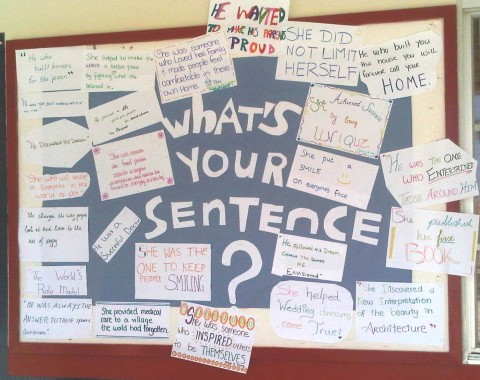 HE WANTED
TO MAKE HIS PARENTS
PROUD
SHE DID
NOT LIMIT
HERSELF
He who built you
the house you will
forever call your
HOME.
"He who
built homes
for the poor"
She helped to make the
world a better place
by fighting what she
believed in.
She was someone
who loved her Family
& made people feel
comfortable in there
own Home
She Achieved Success
by being
UNIQUE
WHAT'S
YOUR
SENTENCE
?
"He Discovered the
She put a
SMILE
on everyone's face
"HE WAS THE ONE
WHO ENTERTAINED
THOSE AROUND HIM
She will leave
a footprint in the
world of Art
She published
her first
BOOK
She changed the way people
look at and listen to the
art of
He was a
Successful Doctor
SHE WAS THE
ONE TO KEEP
PEOPLE SMILING
He Followed his Dream
Created The Games
HE
ENVISIONED
The World's
Role Model
"HE WAS ALWAYS THE
ANSWER TO THOSE
She provided medical
care to a village
the world had forgotten.
She was someone
who INSPIRED others
to be THEMSELVES
She helped
Wedding dreams
come True!
"She Discovered a
New Interpretation
of the beauty in
Architecture"